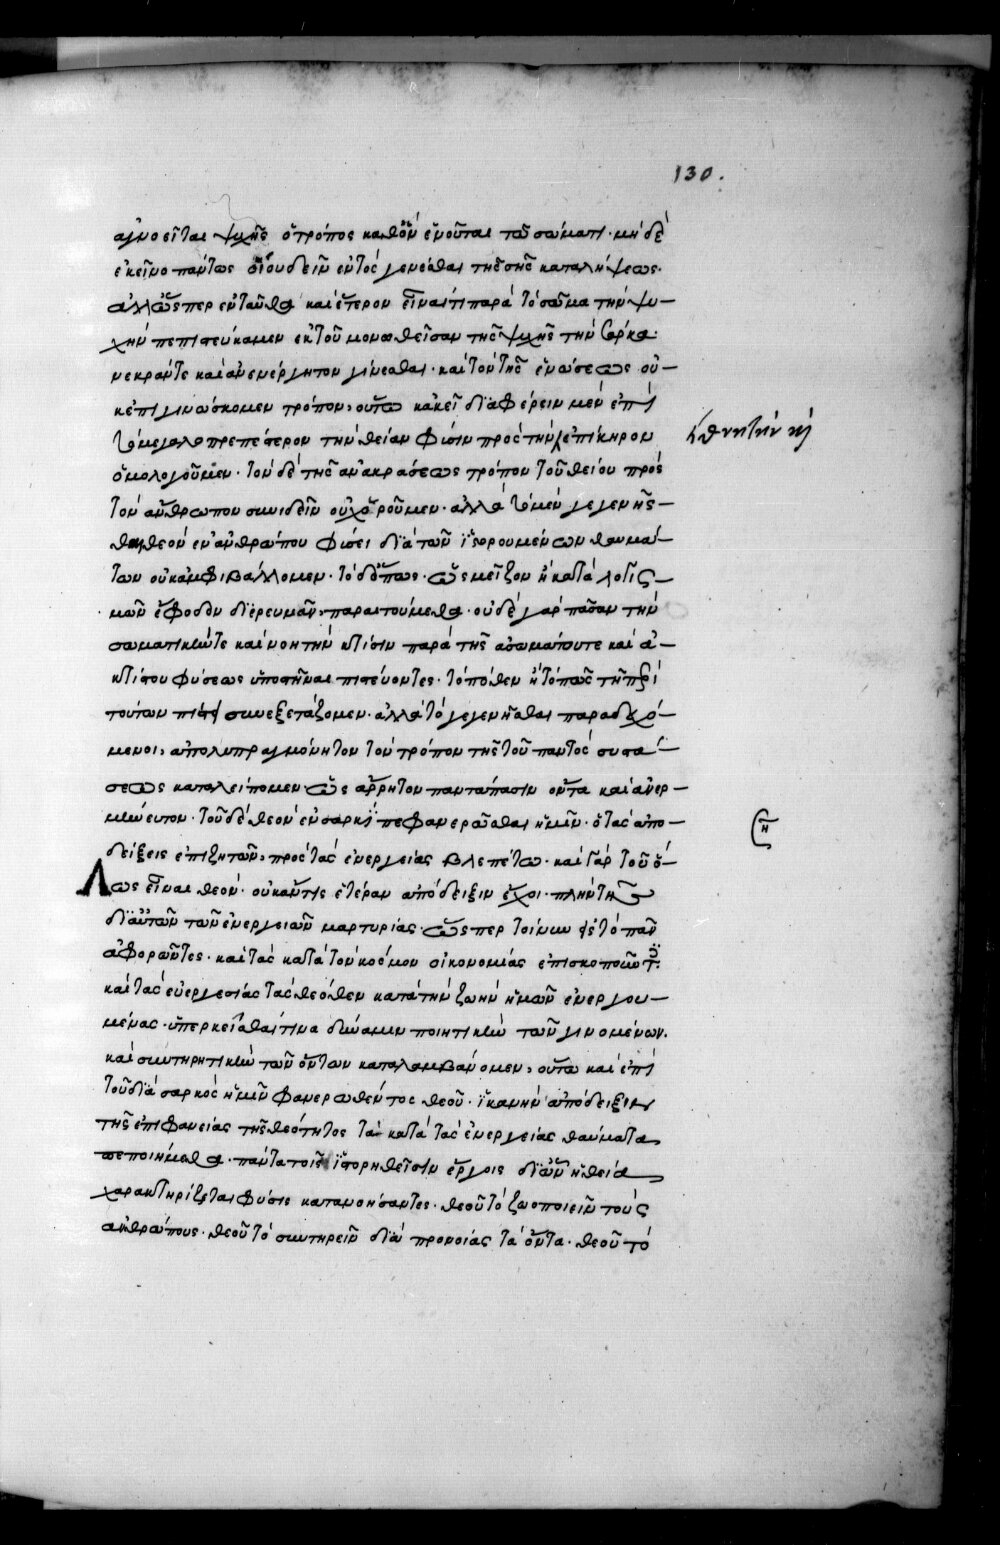 130.
ἀγνοεῖται ψυχῆς ὁ τρόπος καθ' ὃν ἑνοῦται τῶ σώματι· μὴ δὲ
ἐκεῖνο πάντως οἴου δεῖν ἐντὸς γενέσθαι τῆς σῆς καταλήψεως·
ἀλλ' ὥσπερ ἐνταῦθα καὶ ἕτερον εἶναί τι παρὰ τὸ σῶμα τὴν ψυ-
χὴν πεπιστεύκαμεν ἐκ τοῦ μονωθεῖσαν τῆς ψυχῆς τὴν σάρκα·
νεκράν τε καὶ ἀνενέργητον γίνεσθαι· καὶ τὸν τῆς ἑνώσεως οὐ-
κ ἐπιγινώσκομεν τρόπον, οὕτω κἀκεῖ διαφέρειν μὲν ἐπὶ
τὸ μεγαλοπρεπέστερον τὴν θείαν φύσιν πρὸς τὴν ἐπίκηρον
θνητὴν κὶ
ὁμολογοῦμεν· τὸν δὲ τῆς ἀνακράσεως τρόπον τοῦ θείου πρὸς
τὸν ἄνθρωπον συνιδεῖν οὐ χωροῦμεν· ἀλλὰ τὸ μὲν γεγενῆσ-
θαι θεὸν ἐν ἀνθρώπου φύσει διὰ τῶν ἱστορουμένων θαυμά-
των οὐκ ἀμφιβάλλομεν· τὸ δ' ὅπως· ὡς μεῖζον ἢ κατὰ λογισ-
μῶν ἔφοδον διερευνᾶν, παραιτούμεθα· οὐδὲ γὰρ πᾶσαν τὴν
σωματικήν τε καὶ νοητὴν κτίσιν παρὰ τῆς ἀσωμάτου τε καὶ ἀ-
κτίστου φύσεως ὑποστῆναι πιστεύοντες· τὸ πόθεν ἢ τὸ πῶς τῇ περὶ
τούτων πίστει συνεξετάζομεν· ἀλλὰ τὸ γεγενῆσθαι παραδεχό-
μενοι, ἀπολυπραγμόνητον τὸν τρόπον τῆς τοῦ παντὸς συστά-
σεως καταλείπομεν· ὡς ἄρρητον παντάπασιν ὄντα καὶ ἀνερ-
μήνευτον· τοῦ δὲ θεὸν ἐν σαρκὶ πεφανερῶσθαι ἡμῖν· ὁ τὰς ἀπο-
δείξεις ἐπιζητῶν, πρὸς τὰς ἐνεργείας βλεπέτω· καὶ γὰρ τοῦ ὅ-
λως εἶναι θεόν· οὐκ ἄν τις ἑτέραν ἀπόδειξιν ἔχοι· πλὴν τῆς
δι' αὐτῶν τῶν ἐνεργειῶν μαρτυρίας· ὥσπερ τοίνυν εἰς τὸ πᾶν
ἀφορῶντες· καὶ τὰς κατὰ τὸν κόσμον οἰκονομίας ἐπισκοποῦντες·
καὶ τὰς εὐεργεσίας τὰς θεόθεν κατὰ τὴν ζωὴν ἡμῶν ἐνεργου-
μένας· ὑπερκεῖσθαί τινα δύναμιν ποιητικὴν τῶν γινομένων.
καὶ συντηρητικὴν τῶν ὄντων καταλαμβάνομεν, οὕτω καὶ ἐπὶ
τοῦ διὰ σαρκὸς ἡμῖν φανερωθέντος θεοῦ· ἱκανὴν ἀπόδειξιν
τῆς ἐπιφανείας τῆς θεότητος τὰ κατὰ τὰς ἐνεργείας θαύματα
πεποιήμεθα· πάντα τοῖς ἱστορηθεῖσιν ἔργοις δι' ὧν ἡ θεία
χαρακτηρίζεται φύσις κατανοήσαντες· θεοῦ τὸ ζωοποιεῖν τοὺς
ἀνθρώπους· θεοῦ τὸ συντηρεῖν διὰ προνοίας τὰ ὄντα· θεοῦ τὸ